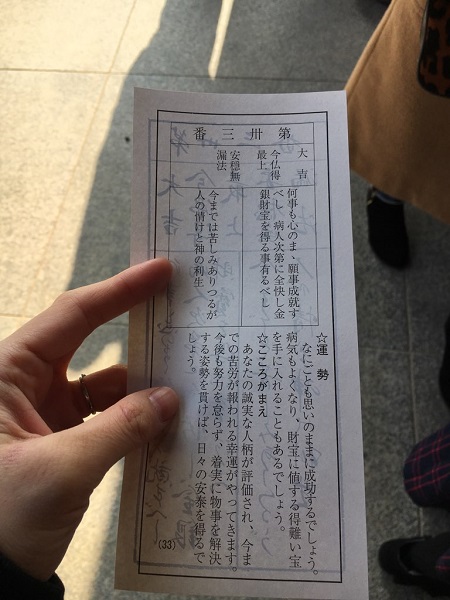 第卅三番
大吉
今仏得
最上
安穏無
漏法
何事も心のまゝ願事成就す
べし、病人次第に全快し金
銀財宝を得る事有るべし
今までは苦しみありつるが
人の情けと神の利生
☆運勢
なにごとも思いのままに成功するでしょう。
病気もよくなり、財宝に値する得難い宝
を手に入れることもあるでしょう。
☆こころがまえ
あなたの誠実な人柄が評価され、今ま
での苦労が報われる幸運がやってきます。
今後も努力を怠らず、着実に物事を解決
する姿勢を貫けば、日々の安泰を得るで
しょう。
(33)